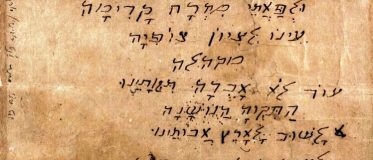 ולפאתי מזרח קדימה
עינו לציון צופיה
מקהלה
עוד לא אבדה תקותינו
התקוה הנושנה
לשוב לארץ אבותינו